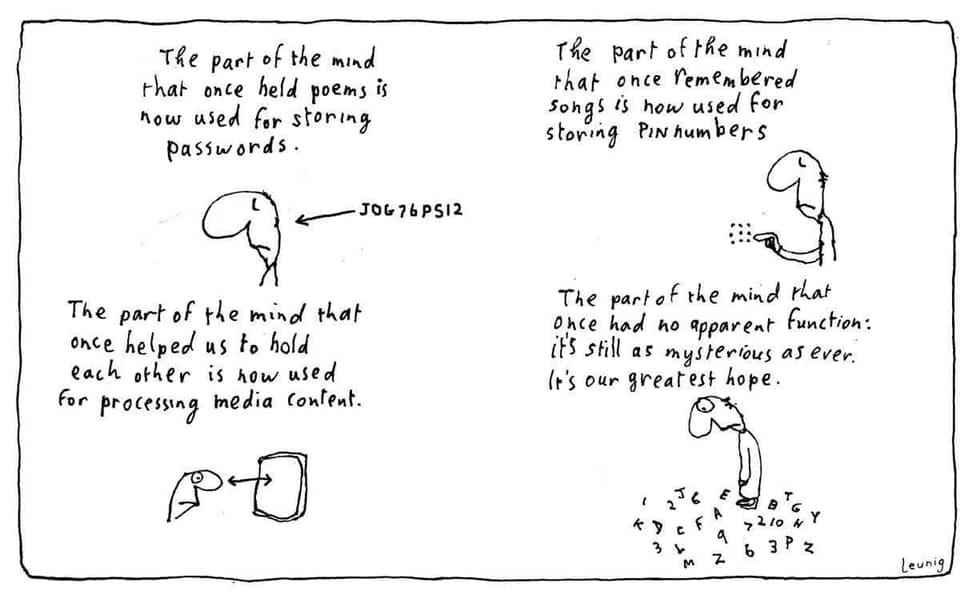 The part of the mind
that once held poems is
now used for storing
passwords.
JOG76PS12
The part of the mind
that once remembered
songs is now used for
storing PIN numbers
The part of the mind that
once helped us to hold
each other is now used
for processing media content.
The part of the mind that
once had no apparent function:
it's still as mysterious as ever.
It's our greatest hope.
1 2 J 6 E B T G Y
K D C F A 7 2 10 N
3 L 9 6 3 P Z
M Z
Leunig